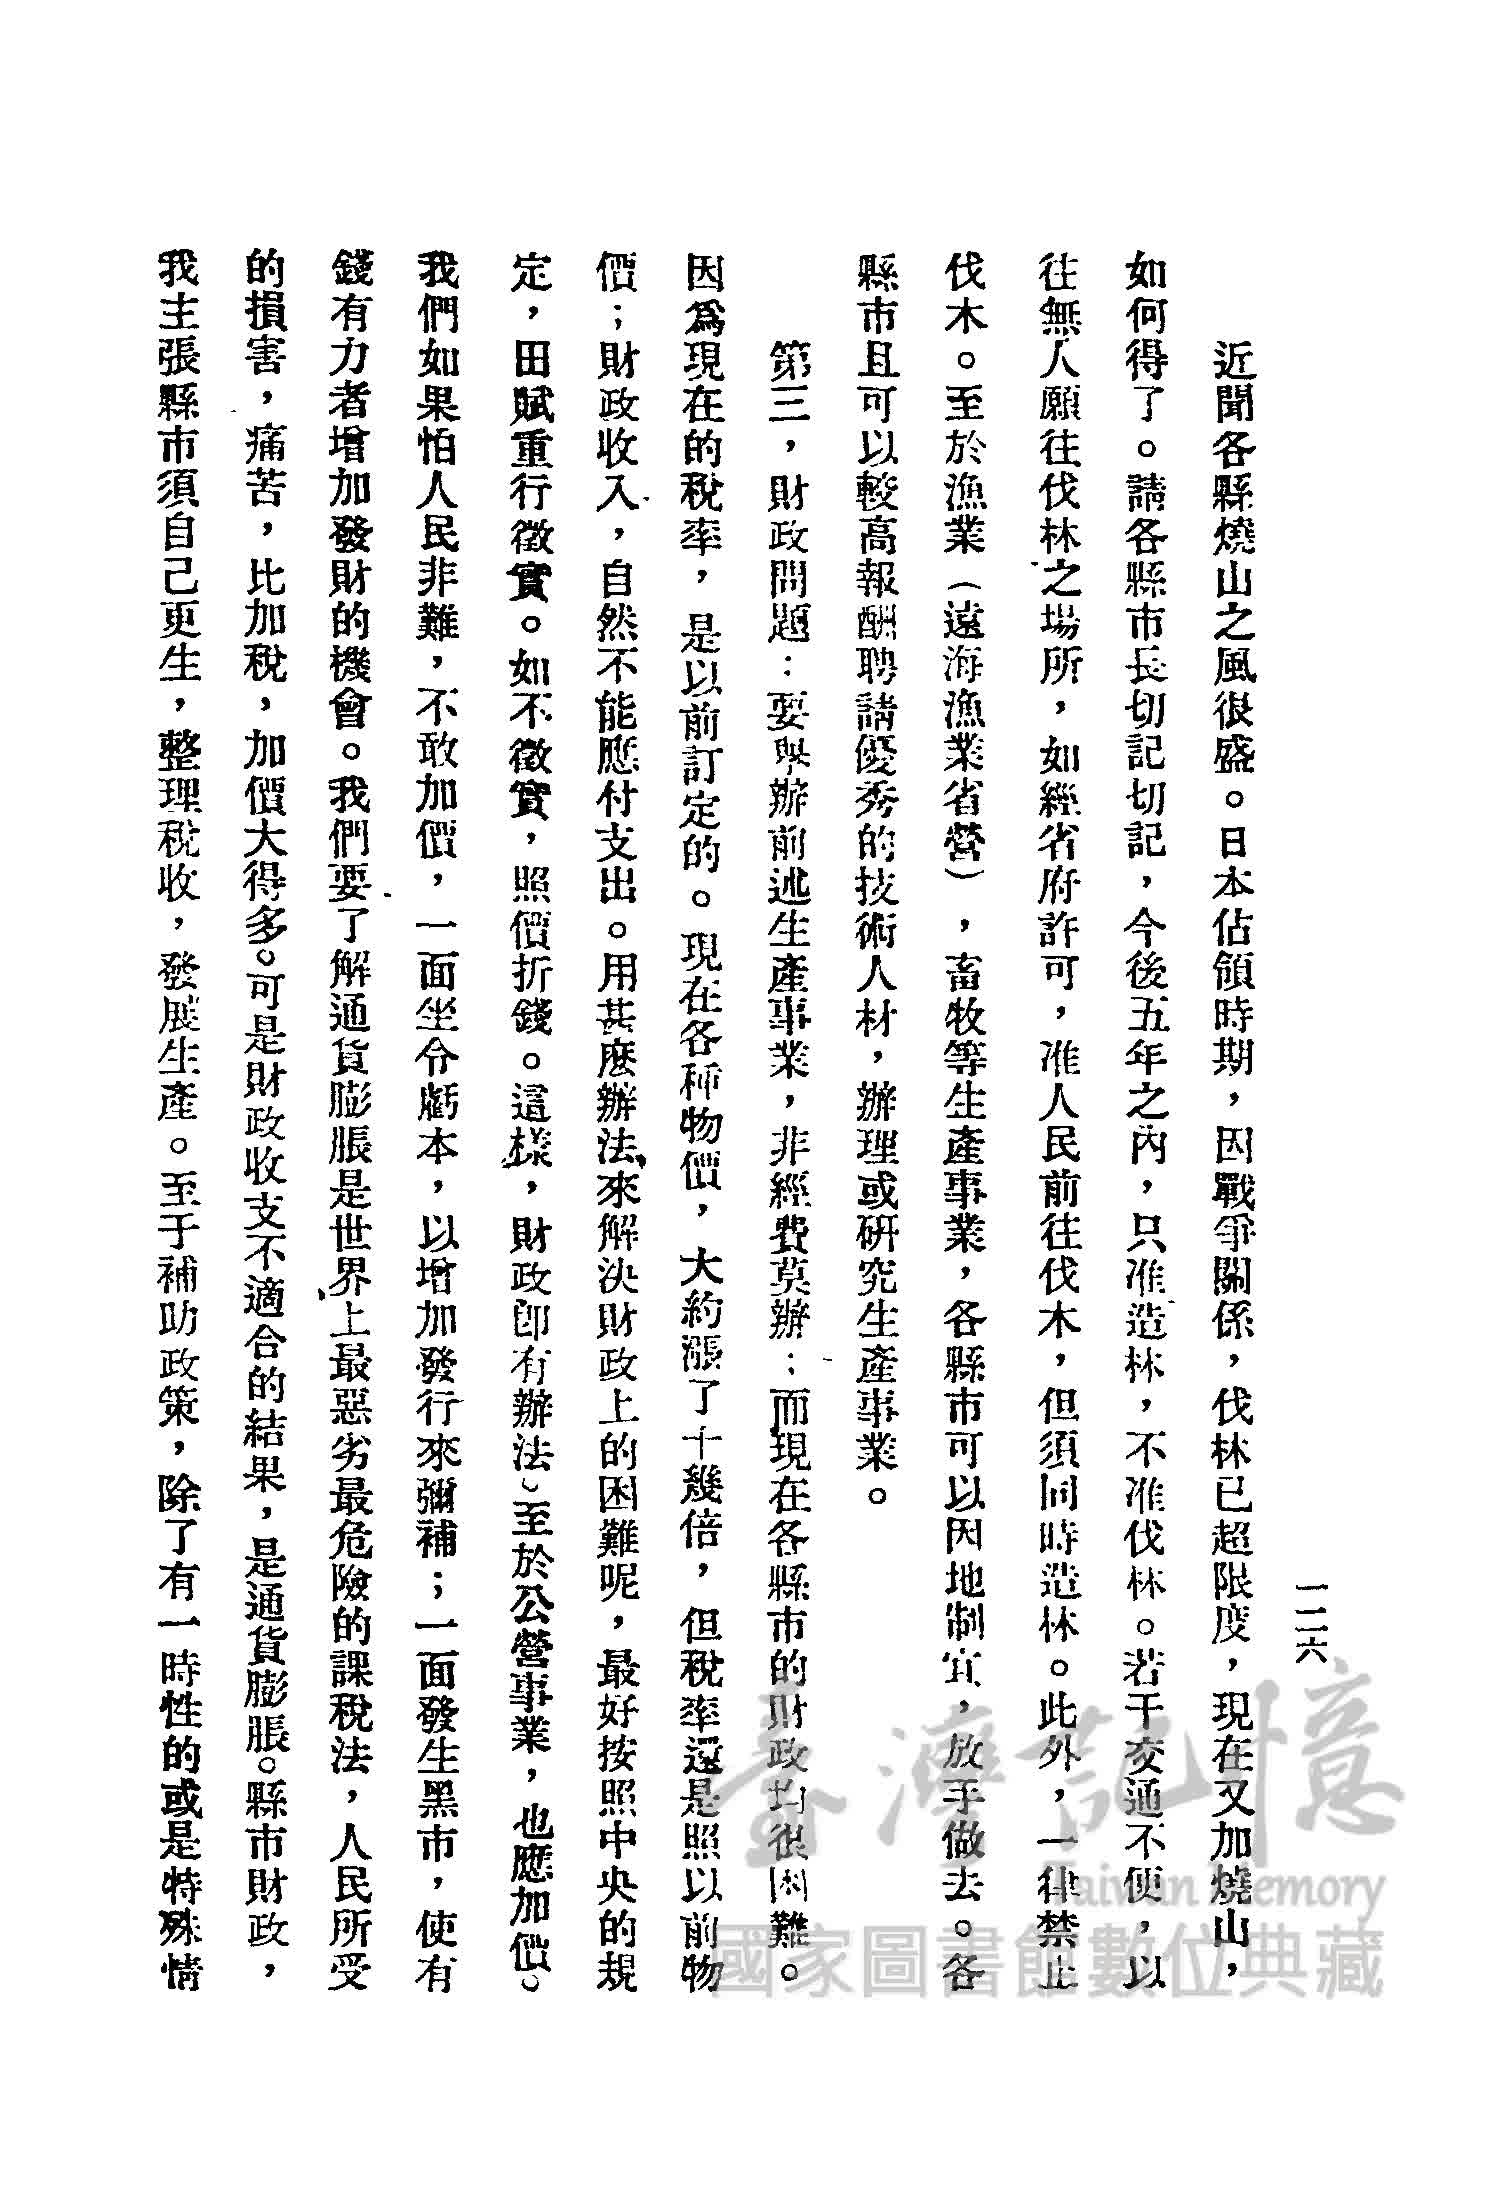 一二六
近聞各縣燒山之風很盛。日本佔領時期，因戰爭關係，伐林已超限度，現在又加燒山，
如何得了。請各縣市長切記切記，今後五年之內，只准造林，不准伐林。若干交通不便，以
往無人願往伐林之場所，如經省府許可，准人民前往伐木，但須同時造林。此外，一律禁止
伐木。至於漁業（遠海漁業省營），畜牧等生產事業，各縣市可以因地制宜，放手做去。各
縣市且可以較高報酬聘請優秀的技術人材，辦理或研究生產事業。
第三，財政問題：要舉辦前述生產事業，非經費莫辦；而現在各縣市的財政均很困難。
因爲現在的稅率，是以前訂定的。現在各種物價，大約漲了十幾倍，但稅率還是照以前物
價；財政收入，自然不能應付支出。用甚麼辦法來解決財政上的困難呢，最好按照中央的規
定，田賦重行徵實。如不徵實，照價折錢。這樣，財政即有辦法。至於公營事業，也應加價。
我們如果怕人民非難，不敢加價，一面坐令虧本，以增加發行來彌補；一面發生黑市，使有
錢有力者增加發財的機會。我們要了解通貨膨脹是世界上最惡劣最危險的課稅法，人民所受
的損害，痛苦，比加稅，加價大得多。可是財政收支不適合的結果，是通貨膨脹。縣市財政，
我主張縣市須自己更生，整理稅收，發展生產。至于補助政策，除了有一時性的或是特殊情
臺灣記憶
Taiwan Memory
國家圖書館數位典藏